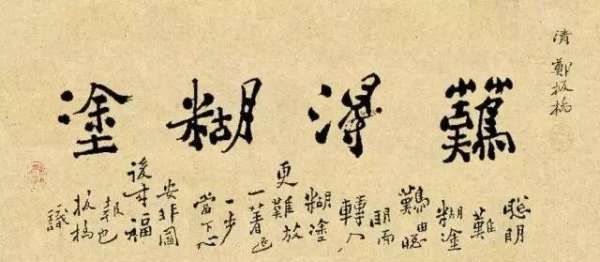 清 鄭板橋
難得糊塗
聰明
難
糊塗
難由聰
明而
轉入
糊塗
更難放
一著退
一步
當下心
安非圖
後来福
報也
板橋
識